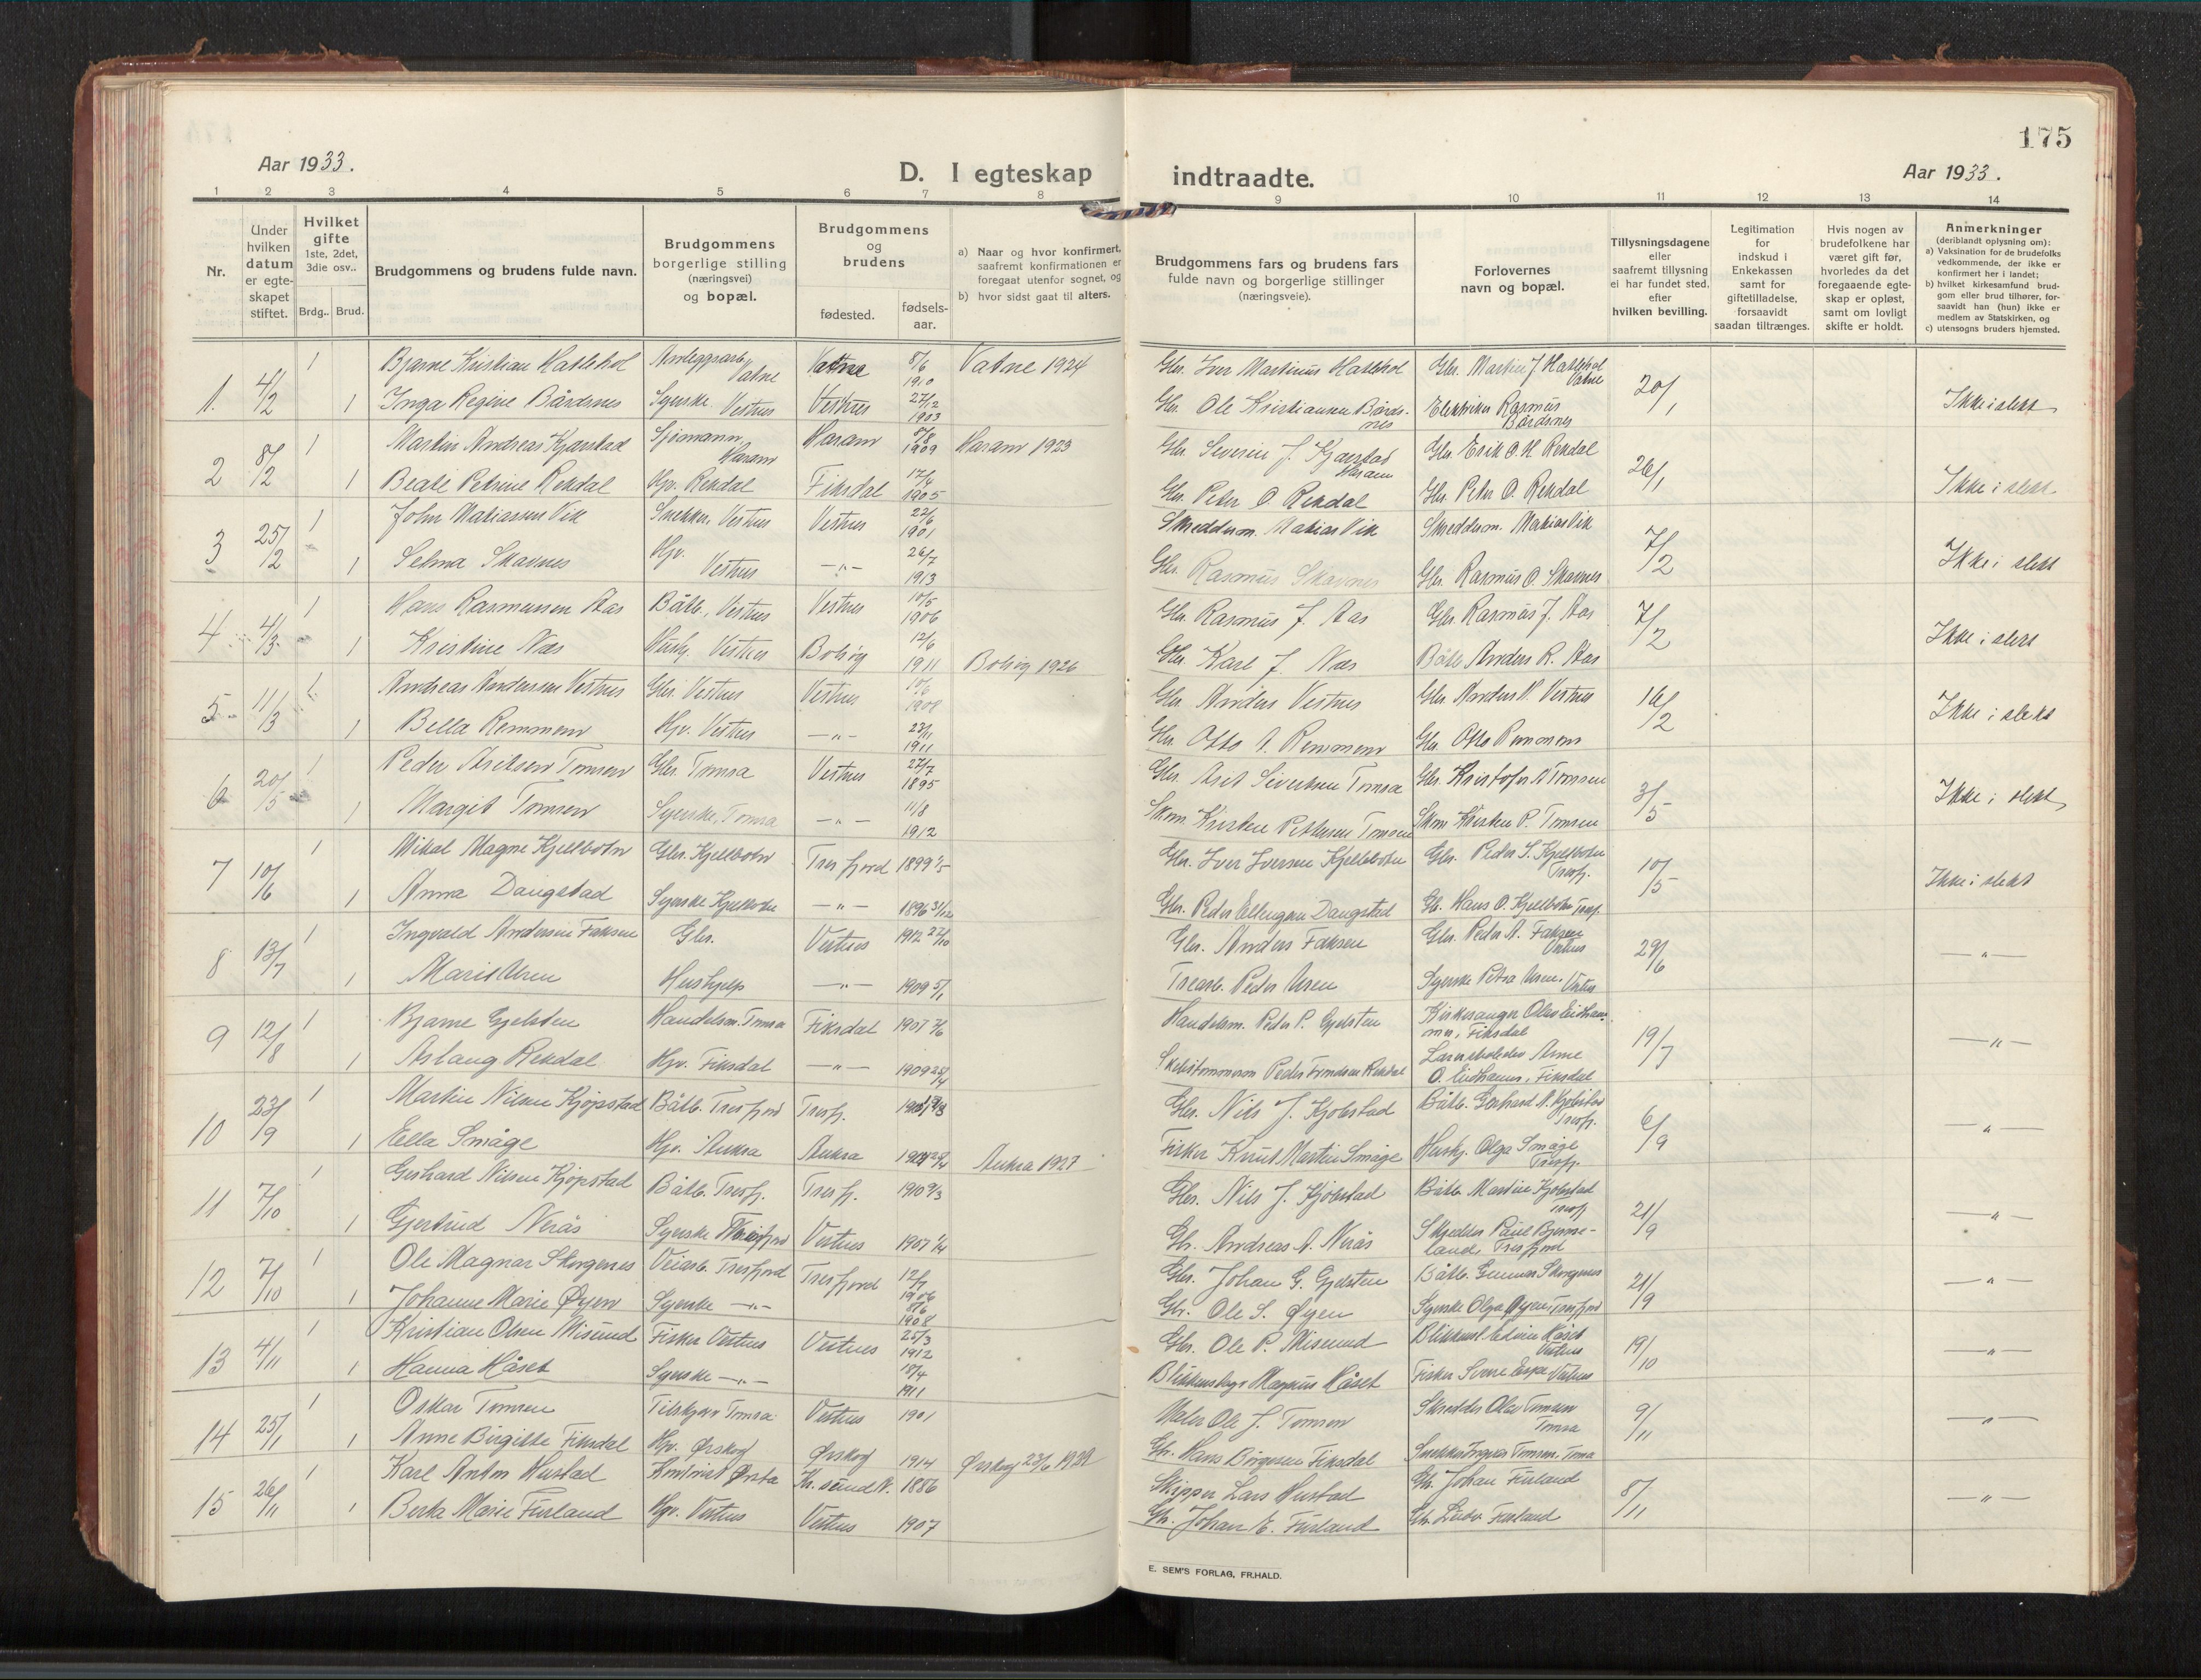 175
Aar 1933.
D. I egteskap indtraadte.
Aar 1933.
1 2 3 4 5 6 7 8 9 10 11 12 13 14
Nr.
Under
hvilken
datum
er egte-
skapet
stiftet.
Hvilket
gifte
1ste, 2det,
3die osv..
Brdg.. Brud.
Brudgommens og brudens fulde navn.
Brudgommens
borgerlige stilling
(næringsvei)
og bopæl.
Brudgommens
og
brudens
fødested.
fødsels-
aar.
a) Naar og hvor konfirmert,
saafremt konfirmationen er
foregaat utenfor sognet, og
b) hvor sidst gaat til alters.
Brudgommens fars og brudens fars
fulde navn og borgerlige stillinger
(næringsveie).
Forlovernes
navn og bopæl.
Tillysningsdagene
eller
saafremt tillysning
ei har fundet sted,
efter
hvilken bevilling.
Legitimation
for
indskud i
Enkekassen
samt for
giftetilladelse,
forsaavidt
saadan tiltrænges.
Hvis nogen av
brudefolkene har
været gift før,
hvorledes da det
foregaaende egte-
skap er opløst,
samt om lovligt
skifte er holdt.
Anmerkninger
(deriblandt oplysning om):
a) Vaksination for de brudefolks
vedkommende, der ikke er
konfirmert her i landet;
b) hvilket kirkesamfund brud-
gom eller brud tilhører, for-
saavidt han (hun) ikke er
medlem av Statskirken, og
c) utensogns bruders hjemsted.
1. 4/2 1 Bjarne Kristian Hatlehol Anleggsarb. Vatne Vatne 8/6 1910 Vatne 1924 Gbr. Iver Martinus Hatlehol Gbr. Martin J. Hatlehol Vatne 20/1 Ikke i slekt
1 Inga Regine Bårdsnes Syerske Vestnes Vestnes 27/12 1903 Gbr. Ole Kristiansen Bårds- nes Elektriker Rasmus Bårdsnes
2 8/2 1 Martin Andreas Kjærstad Sjømann, Haram Haram 8/8 1909 Haram 1923 Gbr. Severin J. Kjærstad Haram Gbr. Erik O. H. Rekdal 26/1 Ikke i slekt
1 Beate Petrine Rekdal Hjv. Rekdal Fiksdal 12/4 1905 Gbr. Peter O. Rekdal Gbr. Peter O. Rekdal
3 25/2 1 John Matiassen Vik Snekker, Vestnes Vestnes 22/6 1901 Skreddern. Matias Vik Skreddern. Matias Vik 7/2 Ikke i slekt
1 Selma Skavnes Hjv. Vestnes —"— 26/7 1913 Gbr. Rasmus Skavnes Gbr. Rasmus O. Skavnes
4 4/3 1 Hans Rasmussen Aas Båtb., Vestnes Vestnes 10/5 1906 Gbr. Rasmus J. Aas Gbr. Rasmus J. Aas 7/2 Ikke i slekt
1 Kristine Næs Hushj. Vestnes Bolsøy 12/6 1911 Bolsøy 1926 Gbr. Karl J. Næs Båtb. Anders R. Aas
5 11/3 1 Andreas Andersen Vestnes Gbr. Vestnes Vestnes 10/6 1908 Gbr. Anders Vestnes Gbr. Anders A. Vestnes 16/2 Ikke i slekt
1 Bella Remmem Hjv. Vestnes —"— 23/11 1911 Gbr. Otto A. Remmem Gbr. Otto Remmem
6 20/5 1 Peder Aseksen Tomren Gbr. Tomra Vestnes 27/7 1895 Gbr. Asel Sivertsen Tomra Gbr. Kristofer A Tomren 3/5 Ikke i slekt
1 Margit Tomren Syerske, Tomra —"— 11/8 1912 Skom. Kristen Pettersen Tomren Skom Kristen P. Tomren
7 10/6 1 Mikal Magne Kjellbotn Gbr. Kjellbotn Tresfjord 1899 1/5 Gbr. Iver Iversen Kjellbotn Gbr. Peder S. Kjellbotn Tresfj. 10/5 Ikke i slekt
1 Anna Daugstad Syerske Kjellbotn —"— 1896 31/12 Gbr. Peder Ellingsen Daugstad Gb. Hans O. Kjellbotn Tresfj.
8 13/7 1 Ingvald Andersen Faksen Gbr. Vestnes 1912 22/10 Gbr. Anders Faksen Gbr. Peder A. Faksen Vestnes 29/6 —"—
1 Marit Uren Hushjelp —"— 1909 5/1 Trearb. Peder Uren Syerske Petra Uren. Vestnes
9 12/8 1 Bjarne Gjelsten Handelsm. Tomra Fiksdal 1907 7/6 Handelsm. Peder P. Gjelsten Kirkesanger Olav Eidham- mer, Fiksdal 19/7 —"—
1 Aslaug Rekdal Hjv. Fiksdal —"— 1909 25/4 Peder Rekdal Arne O. Eidhamm, Fiksdal
10 23/9 1 Martin Nilsen Kjøpstad Båtb. Tresfjord Tresfj. Gbr. Nils J. Kjøbstad Båtb. Gerhard N. Kjøbstad Tresfj. 6/9 —"—
1 Ella Småge Hjv. Aukra Aukra Aukra 1927 Fisker Knut Martin Småge Hushj. Olga Småge Tresfj.
11 7/10 1 Gerhard Nilsen Kjøpstad Båtb. Tresfj. Tresfj. 1910 9/3 Gbr. Nils J. Kjøbstad Båtb. Martin Kjøbstad Tresfj 21/9 —"—
1 Gjertrud Nerås Syerske Tresfjord Vestnes 1907 1/4 Gbr. Andreas A. Nerås Skredder Paul Bjerme- land, Tresfjord
12 7/10 1 Ole Magnar Skorgenes Veiarb. Tresfjord Tresfjord 12/7 1906 Gbr. Johan G. Gjelsten Båtb. Gunnar Skorgenes 21/9 —"—
1 Johanne Marie Øyen Syerske —"— 8/6 1908 Gbr. Ole S. Øyen Syerske Olga Øyen, Tresfjord
13 4/11 1 Kristian Olsen Misund Fisker Vestnes Vestnes 25/3 1912 Gbr. Ole P. Misund Blikkensl. Edvin Håset Vestnes 19/10 —"—
1 Hanna Håset Syerske —"— 18/4 1911 Blikkenslager Magnus Håset Fisker Sverre Vestnes
14 25/1 1 Oskar Tomren Tomra Vestnes 1901 Maler Ole J. Tomren Skredder Olav Tomren Tomra 9/11 —"—
1 Anne Birgitte Fiksdal Hjv. Ørskog Ørskog 1914 Ørskog 23/6 1929 Gbr. Hans Børgesen Fiksdal Snekker Ingvar Tomren. Tomra
15 26/11 1 Karl Anton Hustad Ørsta Kr. sund N. 1886 Skipper Lars Hustad Gbr. Johan Furland 8/11 —"—
1 Berta Marie Furland Hjv. Vestnes Vestnes 1907 Gbr. Johan E. Furland Gbr. Ludv. Furland
E. SEM'S FORLAG, FR.HALD.